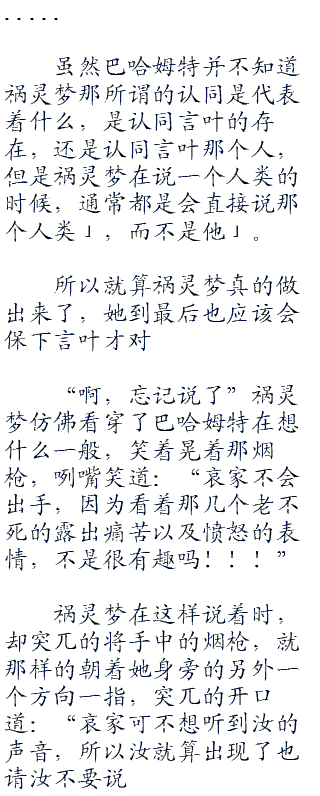 .....
虽然巴哈姆特并不知道
祸灵梦那所谓的认同是代表
着什么，是认同言叶的存
在，还是认同言叶那个人，
但是祸灵梦在说一个人类的
时候，通常都是会直接说那
个人类」，而不是他」。
所以就算祸灵梦真的做
出来了，她到最后也应该会
保下言叶才对
“啊，忘记说了”祸灵
梦仿佛看穿了巴哈姆特在想
什么一般，笑着晃着那烟
枪，咧嘴笑道：“哀家不会
出手，因为看着那几个老不
死的露出痛苦以及愤怒的表
情，不是很有趣吗！！！”
祸灵梦在这样说着时，
却突兀的将手中的烟枪，就
那样的朝着她身旁的另外一
个方向一指，突兀的开口
道：“哀家可不想听到汝的
声音，所以汝就算出现了也
请汝不要说